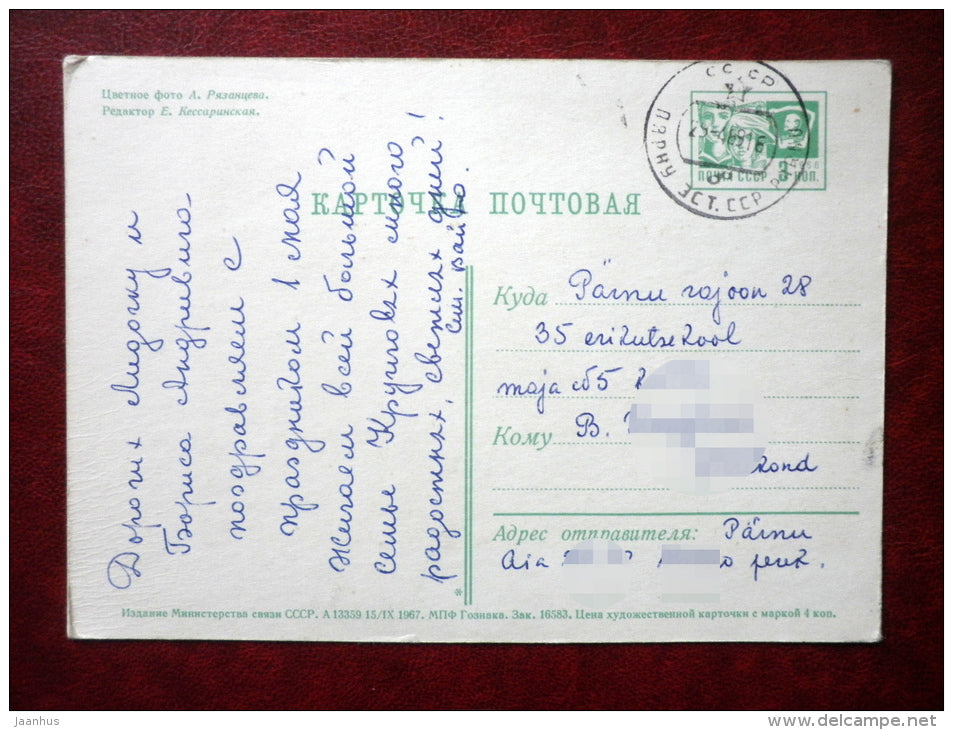 Цветное фото А. Рязанцева.
Редактор Е. Кессаринская.
СССР
ПЯРНУ ЭСТ. ССР
ПОЧТА СССР 3 КОП.
1966
КАРТОЧКА ПОЧТОВАЯ
Дорогих Лидочку и
Бориса Андреевича
поздравляем с
праздником 1 мая
Желаем всей большой
семье Кругловых много
радостных, светлых дней!
сем. Вайно.
Куда Pärnu rajoon 28
35 erikutsekool
maja №5
Кому В.
kond
Адрес отправителя: Pärnu
Aia perek.
*
Издание Министерства связи СССР. А 13359 15/IX 1967. МПФ Гознака. Зак. 16583. Цена художественной карточки с маркой 4 коп.
Jaanhus
www.delcampe.net